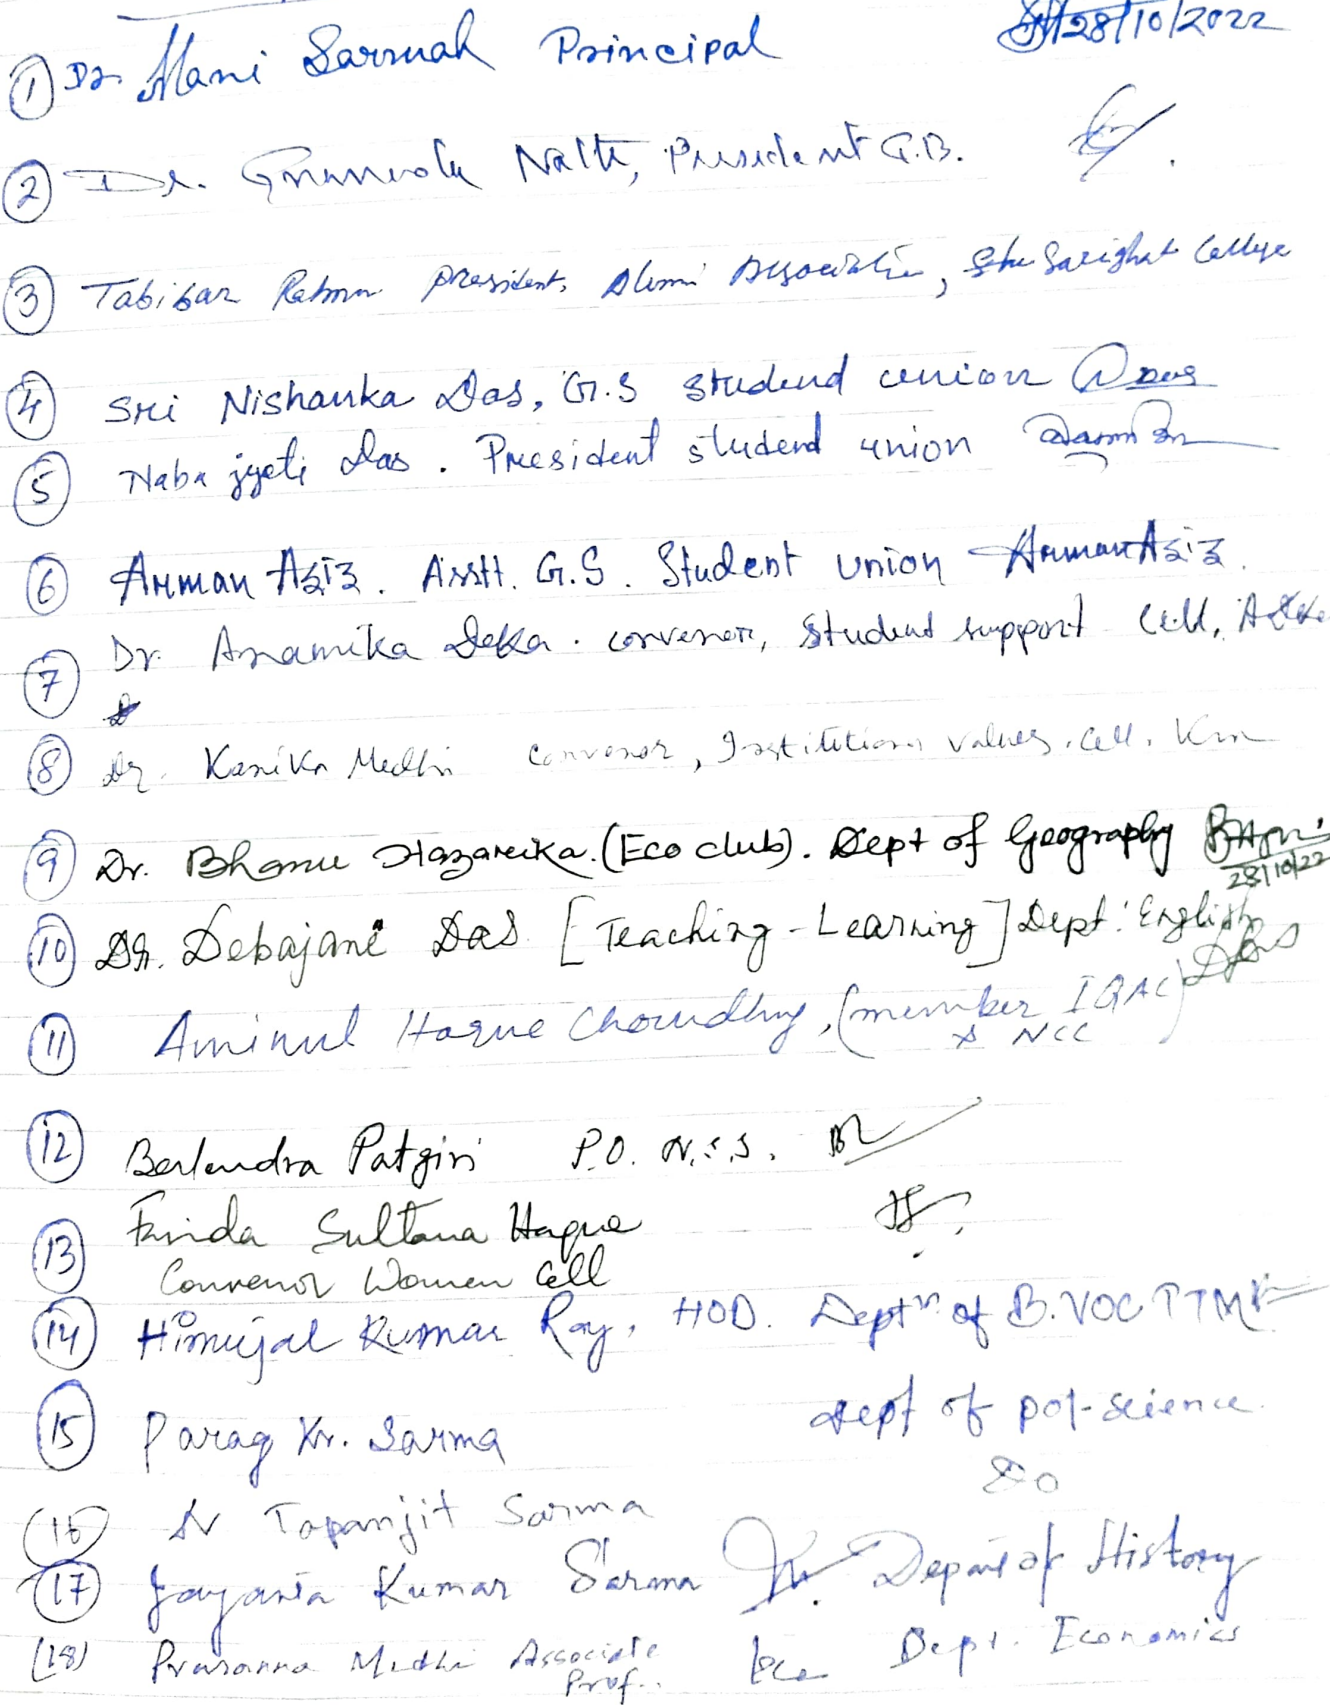 ① Dr. Mani Sarmah Principal 28/10/2022
② Dr. Nath, President G.B.
③ Tabibar Rahman president, Alumni Association, Saraighat College
④ Sri Nishanka Das, G.S studend union Das
⑤ Naba jyoti Das. President studend union
⑥ Arman Aziz. Asstt. G.S. Student union Arman Aziz.
⑦ Dr. Anamika Deka. convenor, Student support Cell,
⑧ Dr. Kanika Medhi Convenor, Institutional values, cell,
⑨ Dr. Bhanu Hazarika. (Eco club). Dept of Geography
28/10/22
⑩ Dr. Debajani Das [Teaching-Learning] Dept: English
Das
⑪ Aminul Haque Choudhury, (member IQAC)
& NCC
⑫ Patgiri P.O. N.S.S.
⑬ Farida Sultana Haque
Convenor Women Cell
⑭ Himujal Kumar Roy, HOD. Deptn of B.VOC TTM
⑮ Parag Kr. Sarma Dept of pol-science
Do
(16) Dr Tapanjit Sarma
⑰ Jayanta Kumar Sarma Depart of History
(18) Prasanna Medhi Associate Dept. Economics
Prof..